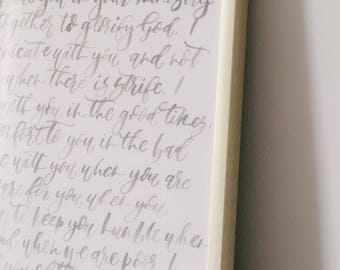 you in your ministry
together to glorify God. I
nicate with you and not
when there is strife. I
with you in the good times,
mfort to you in the bad
e with you when you are
are for you when you
to keep you humble when
nd when we are poor. I